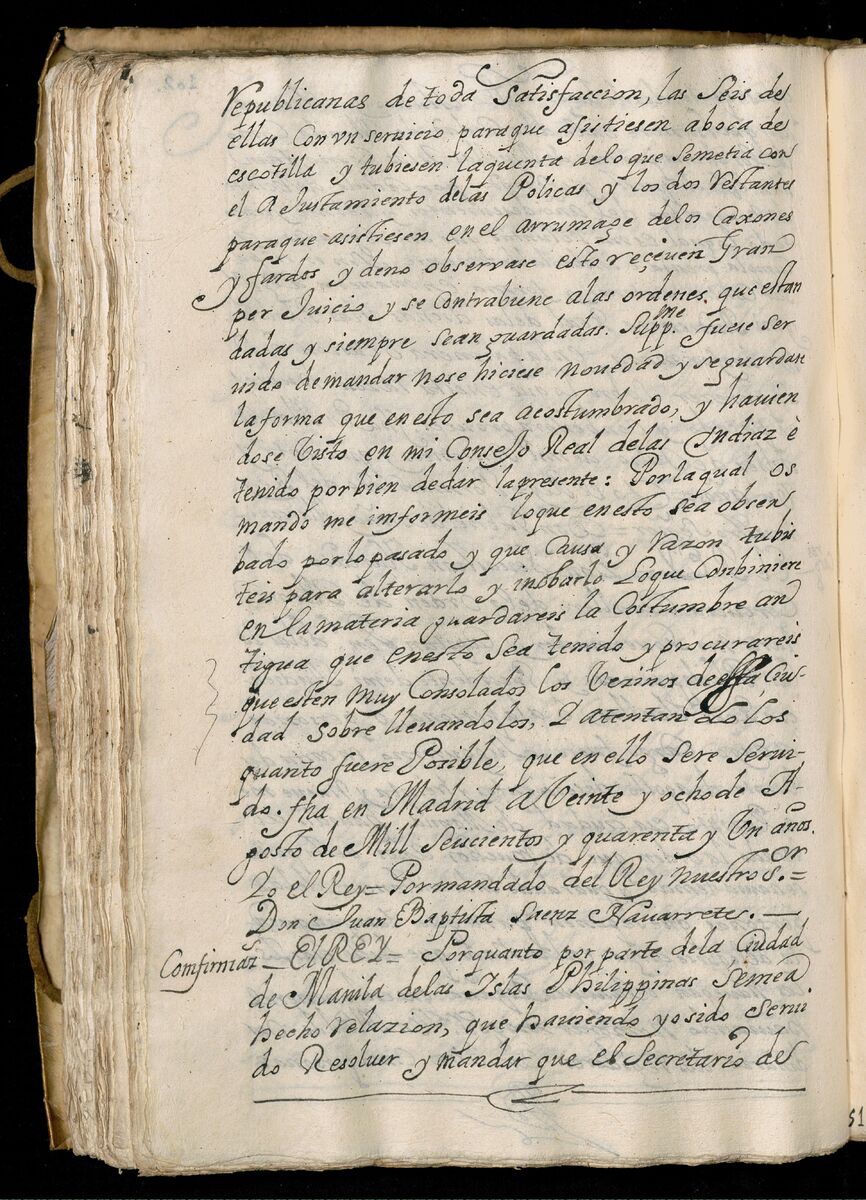 Republicanas de toda Satisfaccion, las Seis de
ellas Con vn seruicio paraque asistiesen aboca de
escotilla y tubiesen laquenta delo que Semetia con
el AJustamiento delas Policas y los dos Restantes
paraque asistiesen en el arrumaçe delos Caxones
y fardos y deno observase esto reçiven Gran
per Juicio y se Contrabiene alas ordenes que estan
dadas y siempre sean guardadas. Supp.me fuese ser
uido demandar nose hiciese novedad y seguardase
laforma que enesto sea acostumbrado, y havien
dose Visto en mi ConseJo Real delas Yndiaz è
tenido porbien dedar lapresente: Porlaqual os
mando me imformeis loque enesto sea obser
bado porlopasado y que Causa y razon tubis
teis para alterarlo y inobarlo Loque Conbiniere
en lamateria guardareis la Costumbre an
tigua que enesto sea tenido y procurareis
que esten muy Consolados los Vezinos de essa Ciu-
dad sobre lleuandolos, Y atentandolos
quanto fuere Posible, que en ello Sere Serui-
do. fha en Madrid a Veinte y ocho de A-
gosto de Mill Seiscientos y quarenta y Vn años.
Yo el Rey= Pormandado del Rey nuestro S.or=
Don Juan Baptista Saenz Navarrete. —
Comfirmaz.n — El REY= Porquanto por parte dela Ciudad
de Manila delas Islas Philippinas Semea
hecho relazion, que haviendo yo sido Serui
do Resoluer y mandar que el Secretario de
51